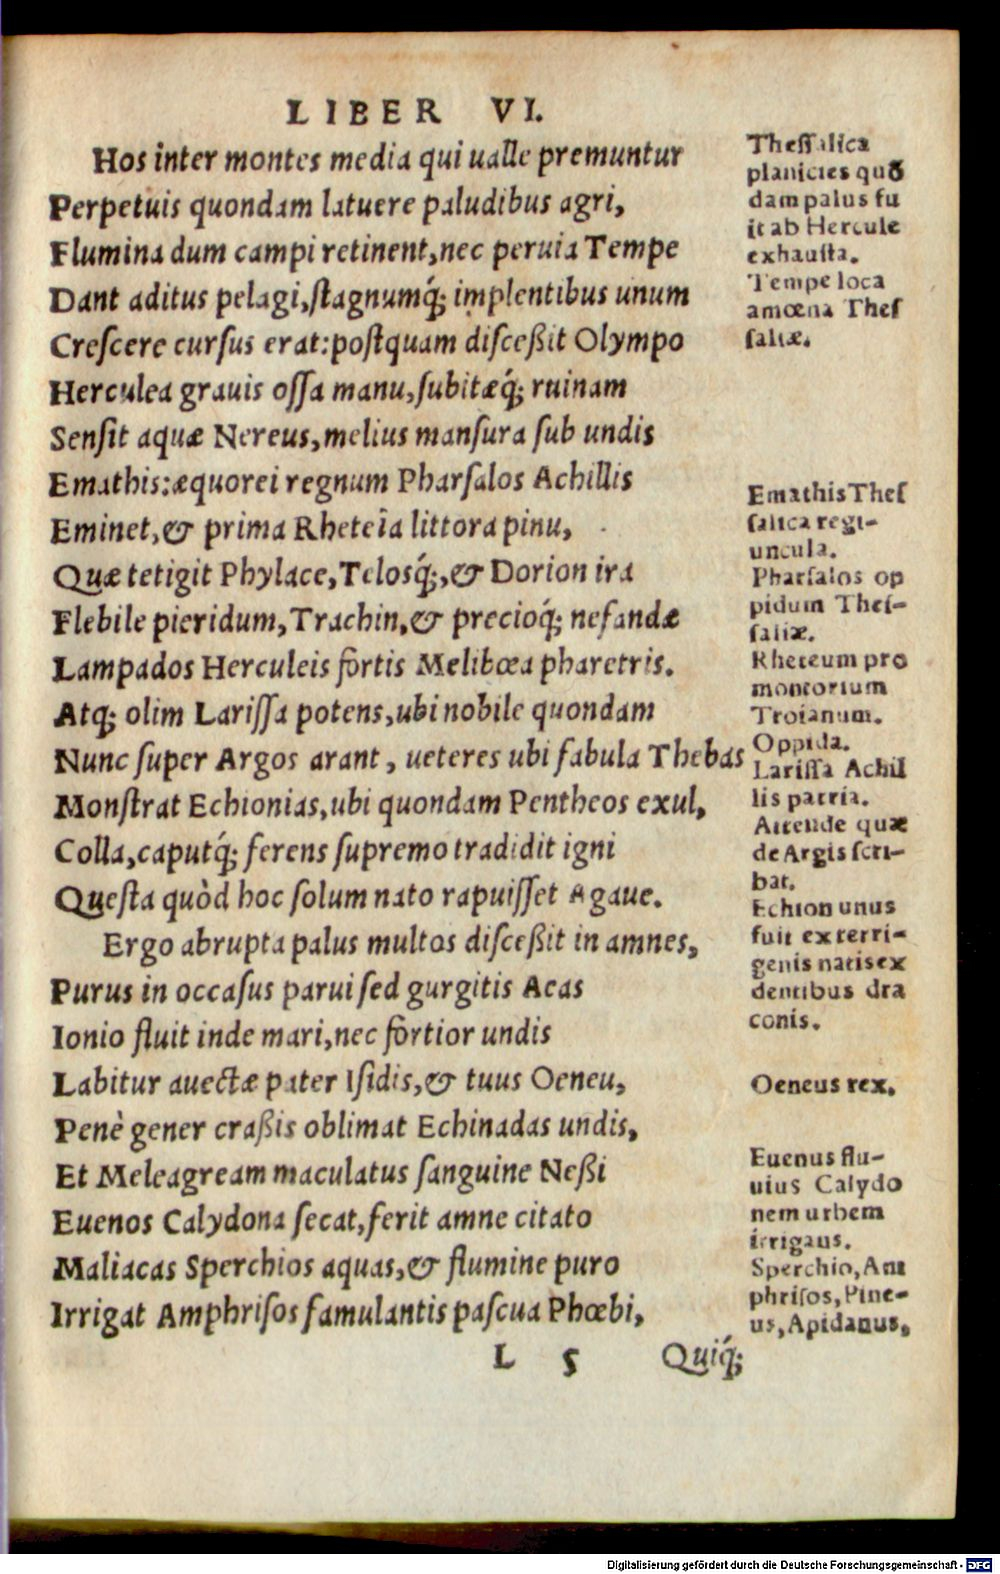 LIBER VI.
Hos inter montes media qui ualle premuntur
Perpetuis quondam latuere paludibus agri,
Flumina dum campi retinent, nec peruia Tempe
Dant aditus pelagi, ſtagnumq́; implentibus unum
Creſcere curſus erat: poſtquam diſceßit Olympo
Herculea grauis oſſa manu, ſubitæq́; ruinam
Senſit aquæ Nereus, melius manſura ſub undis
Emathis: æquorei regnum Pharſalos Achillis
Eminet, & prima Rheteia littora pinu,
Quæ tetigit Phylace, Telosq́;, & Dorion ira
Flebile pieridum, Trachin, & precioq́; nefandæ
Lampados Herculeis fortis Melibœa pharetris.
Atq; olim Lariſſa potens, ubi nobile quondam
Nunc ſuper Argos arant, ueteres ubi fabula Thebas
Monſtrat Echionias, ubi quondam Pentheos exul,
Colla, caputq́; ferens ſupremo tradidit igni
Queſta quòd hoc ſolum nato rapuiſſet Agaue.
Ergo abrupta palus multos diſceßit in amnes,
Purus in occaſus parui ſed gurgitis Aeas
Ionio fluit inde mari, nec fortior undis
Labitur auectæ pater Iſidis, & tuus Oeneu,
Penè gener craßis oblimat Echinadas undis,
Et Meleagream maculatus ſanguine Neßi
Euenos Calydona ſecat, ferit amne citato
Maliacas Sperchios aquas, & flumine puro
Irrigat Amphriſos famulantis paſcua Phœbi,
L 5 Quiq́;
Theſſalica
planicies quō
dam palus fu
it ab Hercule
exhauſta.
Tempe loca
amœna Theſ
ſaliæ.
Emathis Theſ
ſalica regi-
uncula.
Pharſalos op
pidum Theſ-
ſaliæ.
Rheteum pro
montorium
Troianum.
Oppida.
Lariſſa Achil
lis patria.
Attende quæ
de Argis ſcri-
bat.
Echion unus
fuit ex terri-
genis natis ex
dentibus dra
conis.
Oeneus rex.
Euenus flu-
uius Calydo
nem urbem
irrigans.
Sperchio, Am
phriſos, Pine-
us, Apidanus,
Digitalisierung gefördert durch die Deutsche Forschungsgemeinschaft - DFG